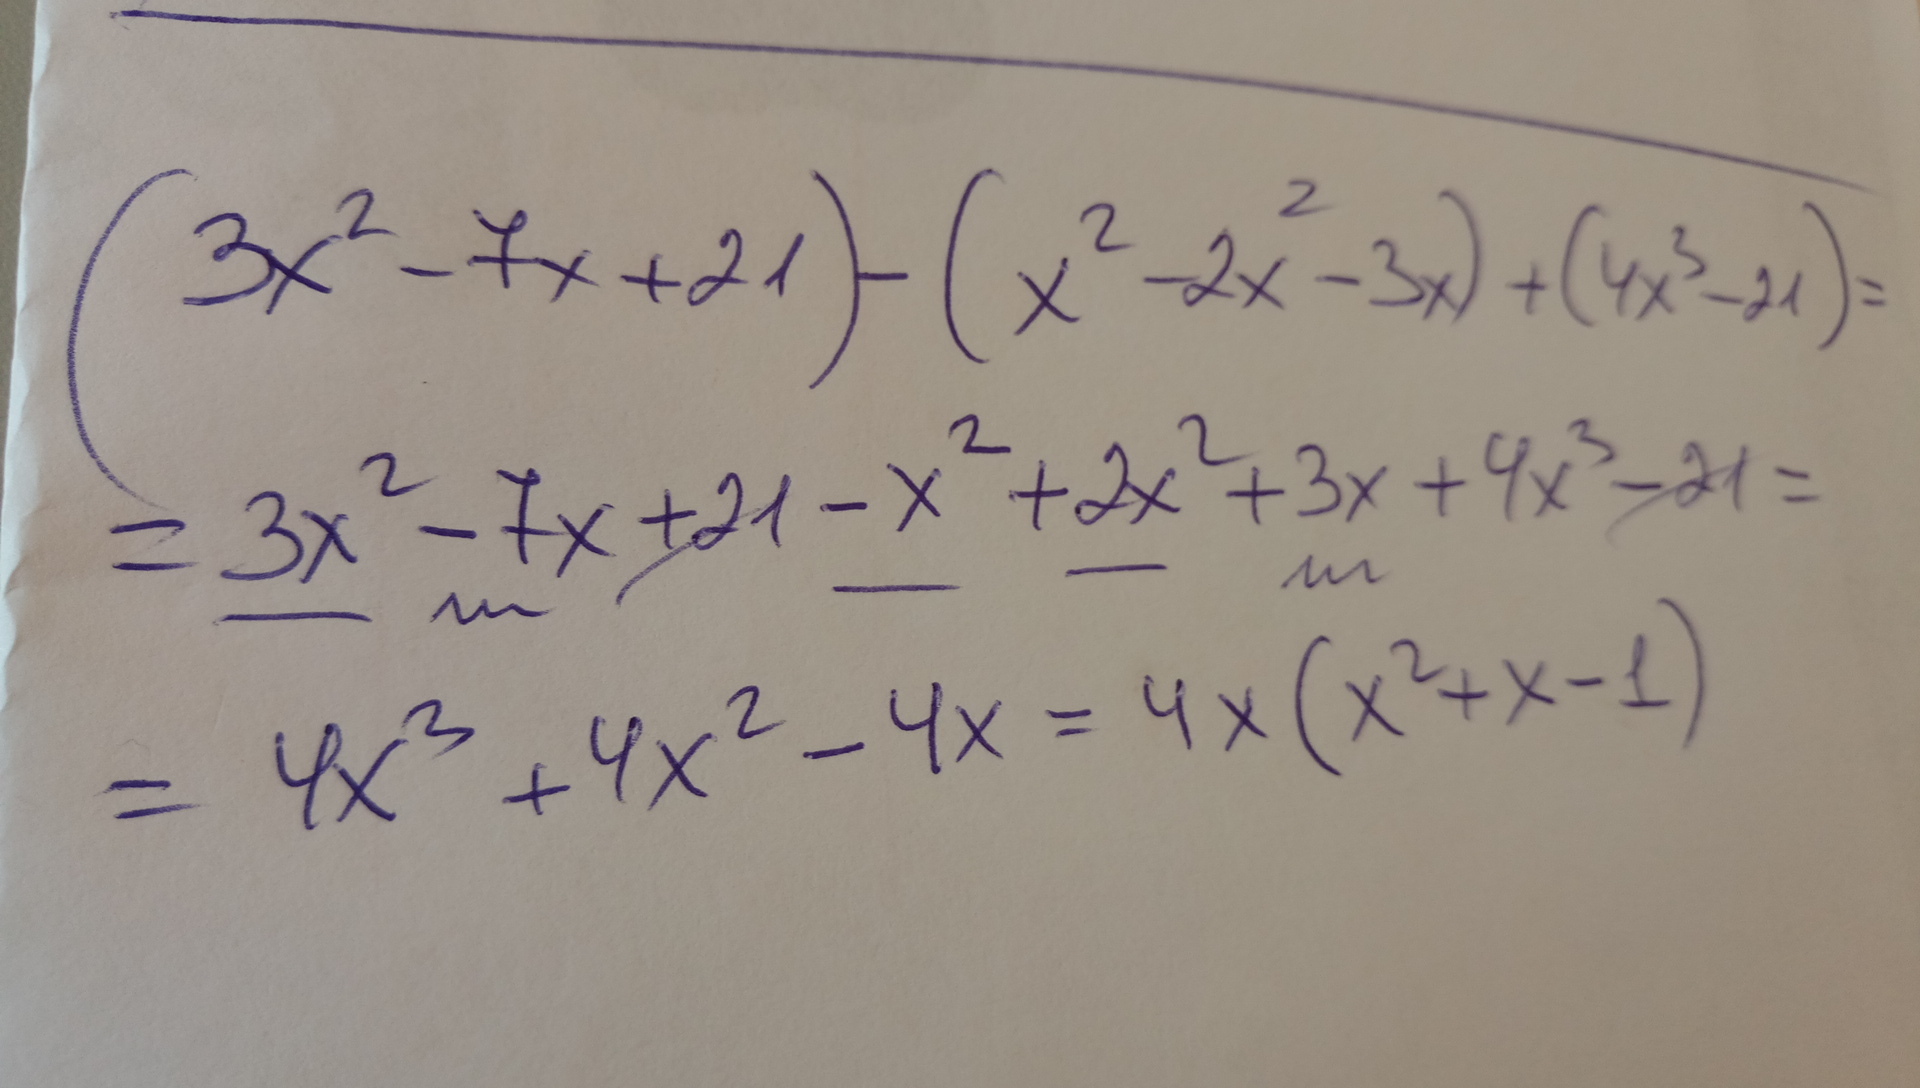 (3x² - 7x + 21) - (x² - 2x² - 3x) + (4x³ - 21) =
= 3x² - 7x + 21 - x² + 2x² + 3x + 4x³ - 21 =
= 4x³ + 4x² - 4x = 4x(x² + x - 1)